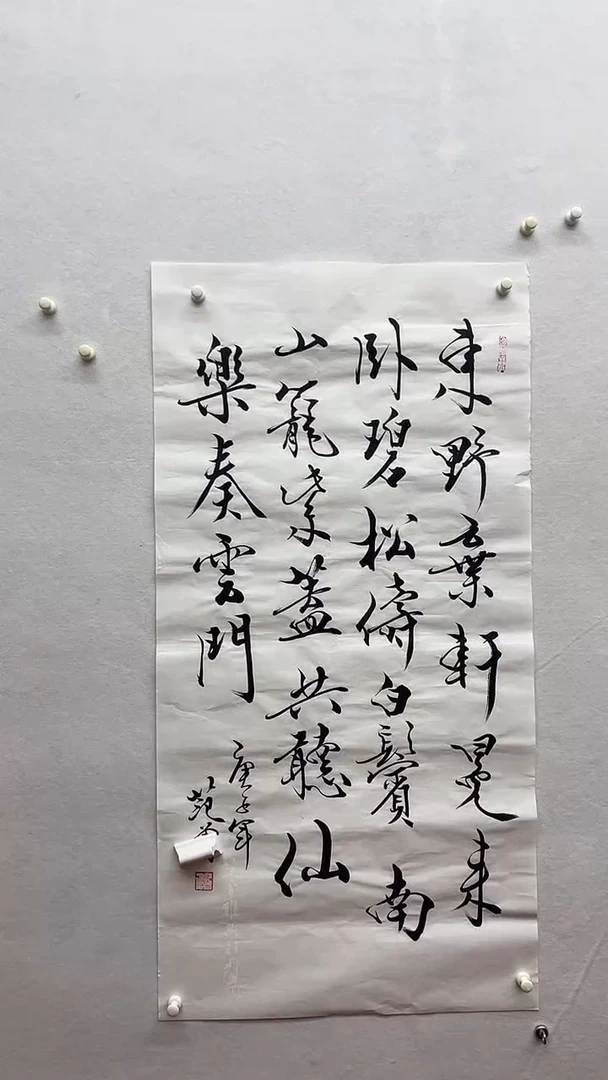 東野棄軒冕来
卧碧松儔白鬢南
山籠紫蓋共聽仙
樂奏雲門
庚子年